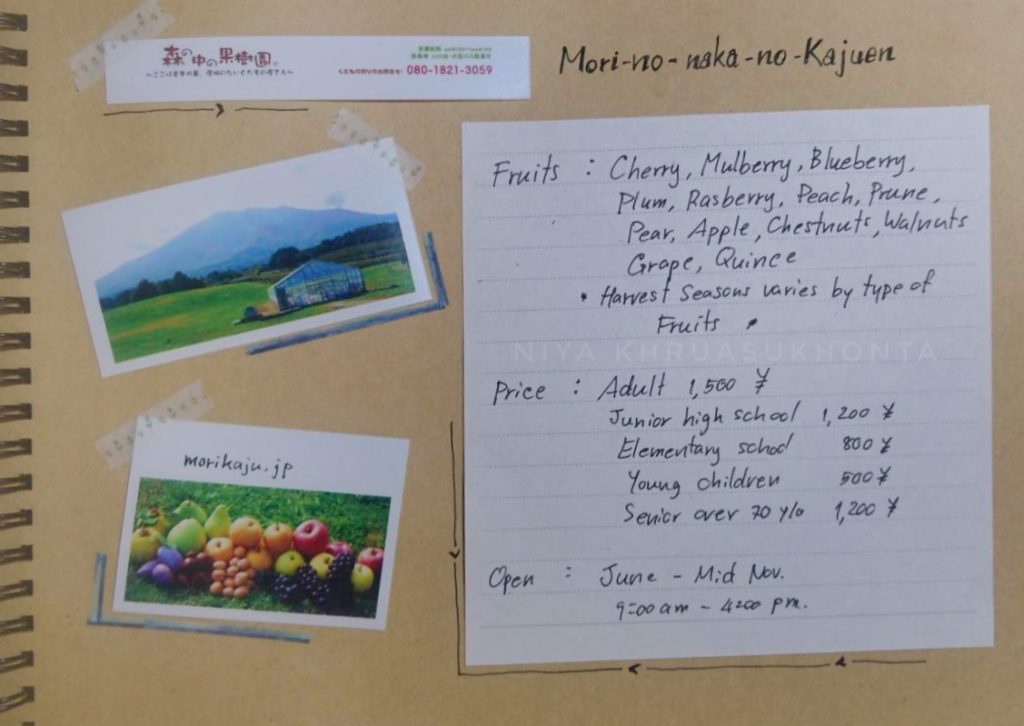 森の中の果樹園
くだもの狩りのお問合せ: 080-1821-3059
Mori-no-naka-no-Kajuen
Fruits : Cherry, Mulberry, Blueberry,
Plum, Rasberry, Peach, Prune,
Pear, Apple, Chestnuts, Walnuts
Grape, Quince
• Harvest Seasons varies by type of
Fruits •
NIYA KHRUASUKHONTA
Price : Adult 1,500 ¥
Junior high school 1,200 ¥
Elementary school 800 ¥
Young children 500 ¥
Senior over 70 y/o 1,200 ¥
Open : June - Mid Nov.
9:00 am - 4:00 pm.
morikaju.jp